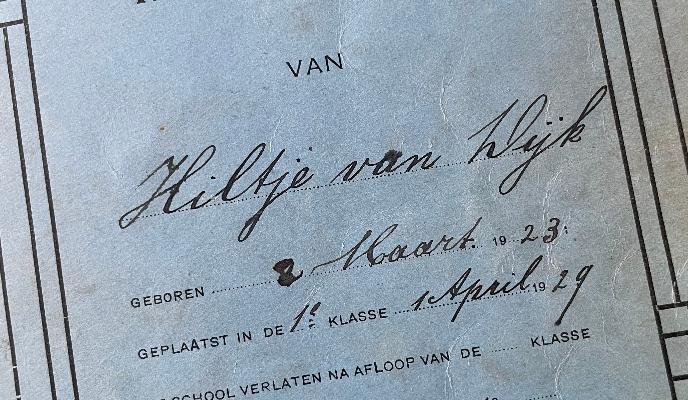 VAN
Hiltje van Dijk
GEBOREN 8 Maart. 1923.
GEPLAATST IN DE 1e KLASSE 1 April 1929
SCHOOL VERLATEN NA AFLOOP VAN DE ...... KLASSE